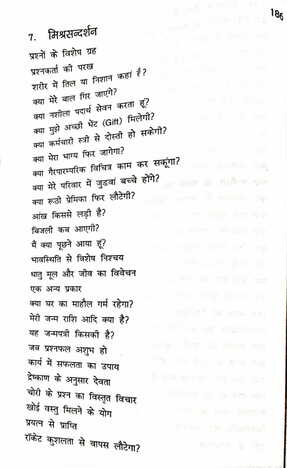 186
7. मिश्रसन्दर्शन
प्रश्नों के विशेष ग्रह
प्रश्नकर्ता की परख
शरीर में तिल या निशान कहां है?
क्या मेरे बाल गिर जाएगे?
क्या नशीला पदार्थ सेवन करता हूं?
क्या मुझे अच्छी भेंट (Gift) मिलेगी?
क्या कर्मचारी स्त्री से दोस्ती हो सकेगी?
क्या मेरा भाग्य फिर जागेगा?
क्या गैरपारम्परिक विचित्र काम कर सकूंगा?
क्या मेरे परिवार में जुडवां बच्चे होंगे?
क्या रूठी प्रेमिका फिर लौटेगी?
आंख किससे लड़ी है?
बिजली कब आएगी?
मैं क्या पूछने आया हूं?
भावस्थिति से विशेष निश्चय
धातु मूल और जीव का विवेचन
एक अन्य प्रकार
क्या घर का माहौल गर्म रहेगा?
मेरी जन्म राशि आदि क्या है?
यह जन्मपत्री किसकी है?
जब प्रश्नफल अशुभ हो
कार्य में सफलता का उपाय
द्रेष्काण के अनुसार देवता
चोरी के प्रश्न का विस्तृत विचार
खोई वस्तु मिलने के योग
प्रयत्न से प्राप्ति
रॉकेट कुशलता से वापस लौटेगा?